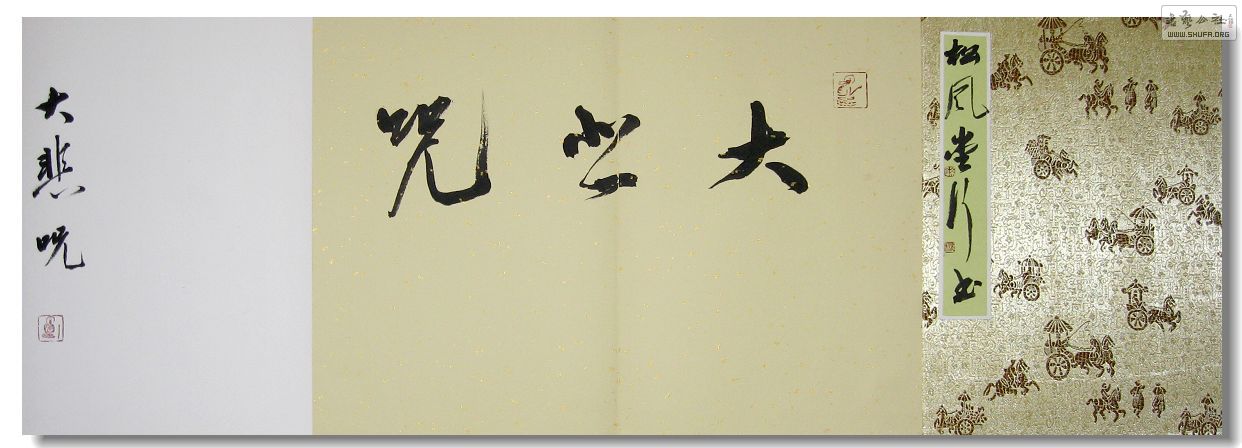 松风堂行书
大悲咒
大悲咒
书艺公社
WWW.SHUFA.ORG